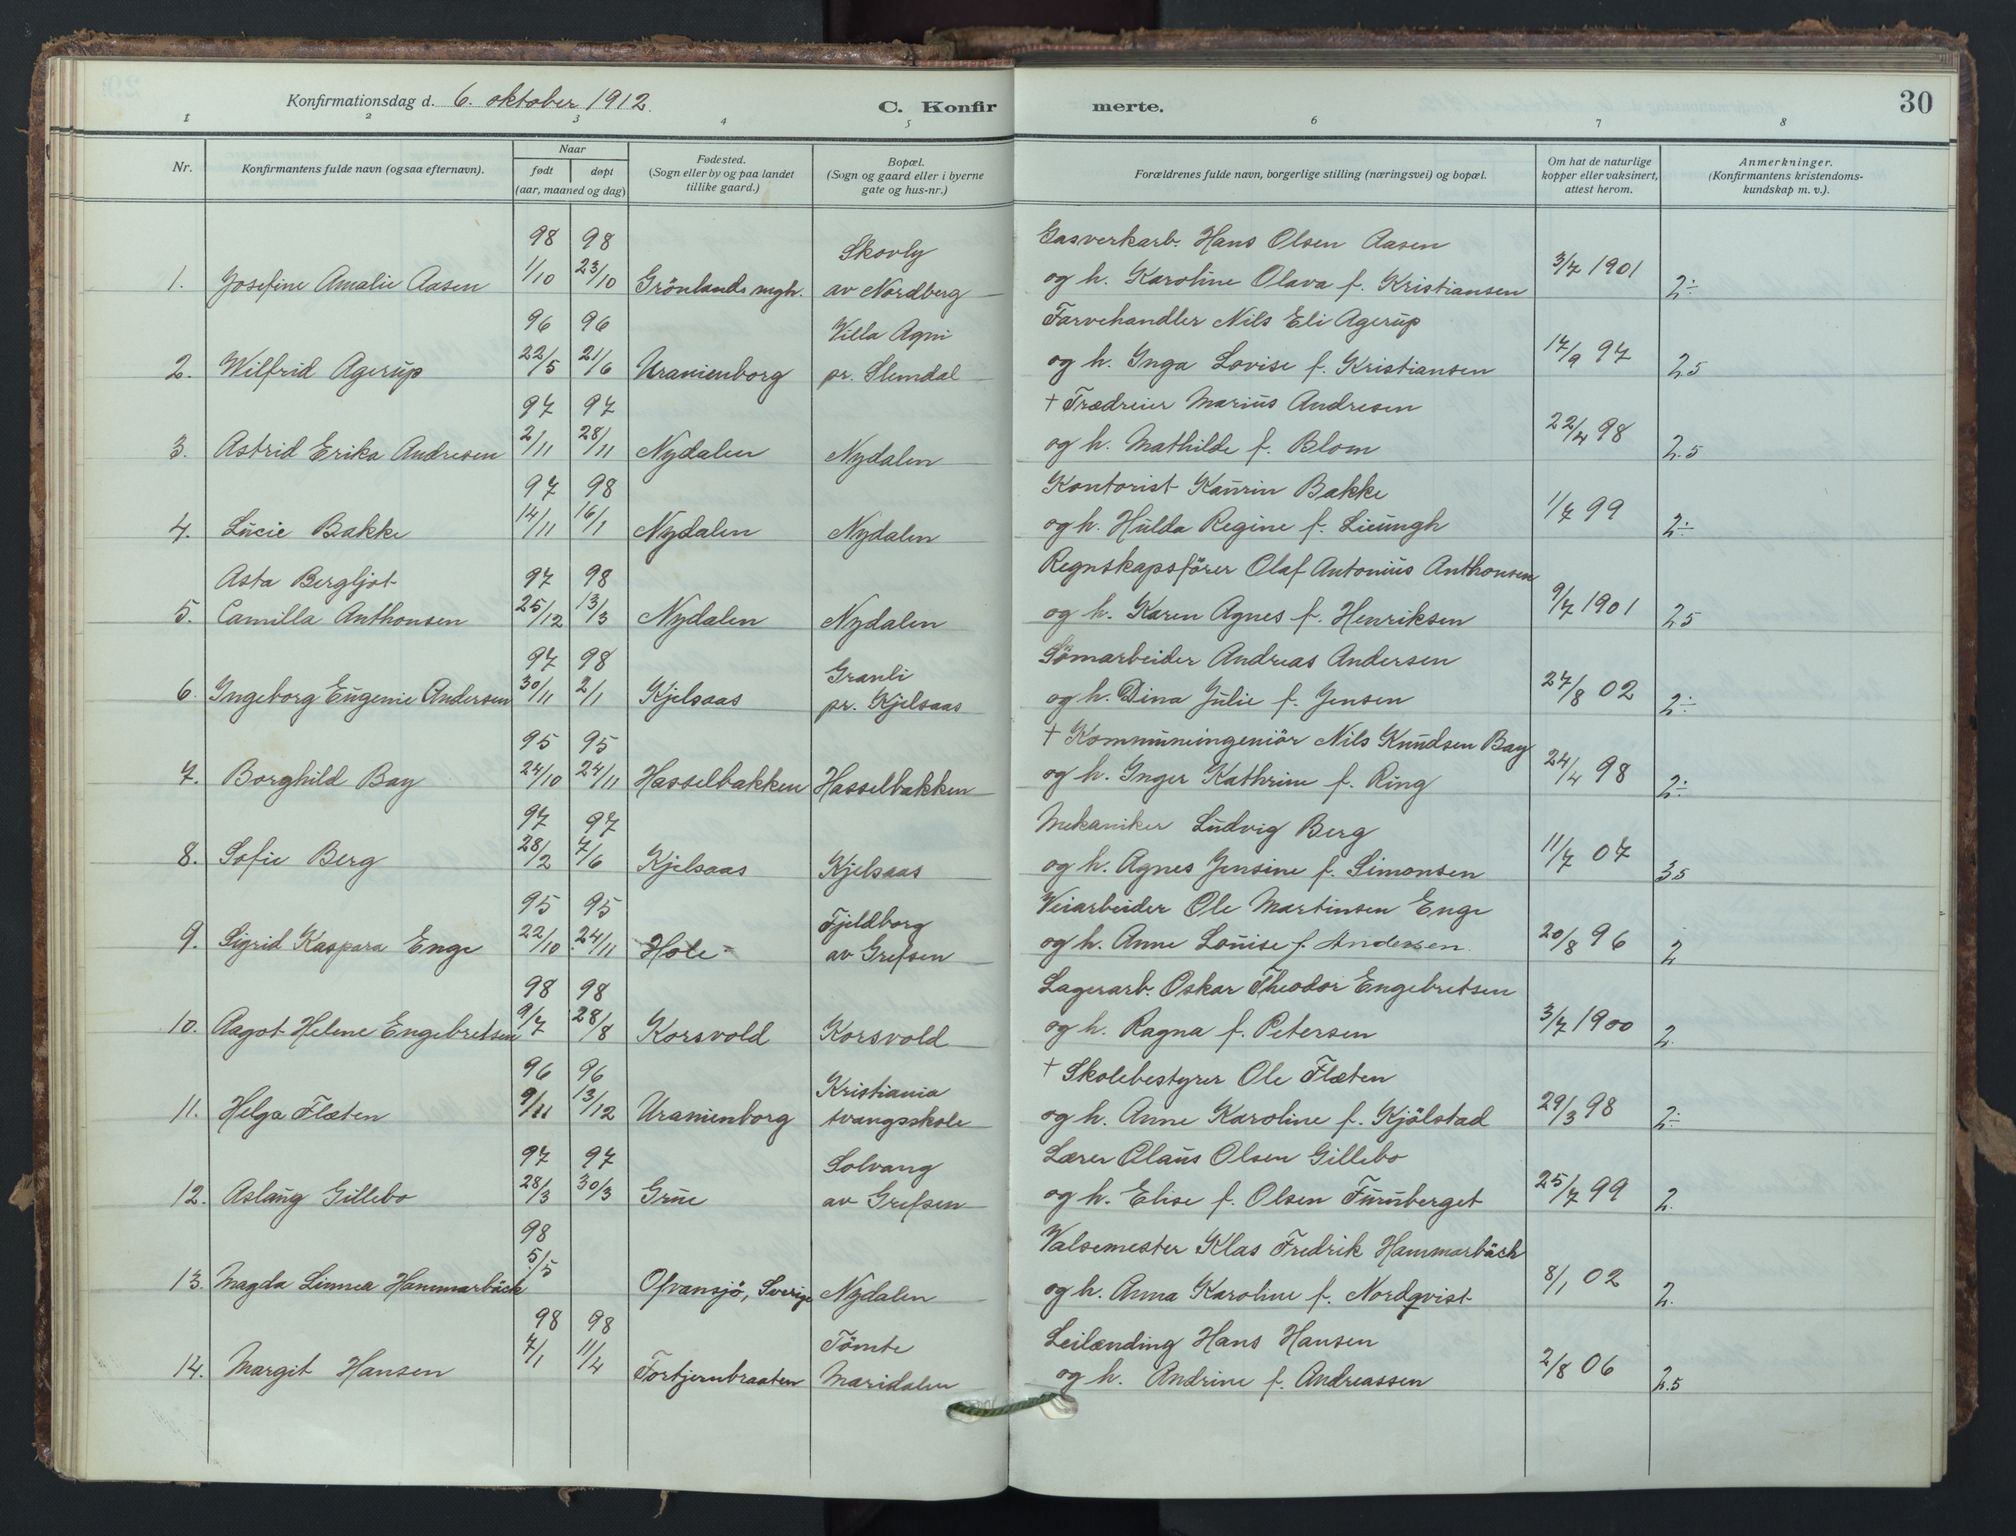 Konfirmationsdag d. 6. oktober 1912.
C. Konfirmerte.
30
1 2 3 4 5 6 7 8
Nr.
Konfirmantens fulde navn (ogsaa efternavn).
Naar
født døpt
(aar, maaned og dag)
Fødested.
(Sogn eller by og paa landet
tillike gaard.)
Bopæl.
(Sogn og gaard eller i byerne
gate og hus-nr.)
Forældrenes fulde navn, borgerlige stilling (næringsvei) og bopæl.
Om hat de naturlige
kopper eller vaksinert,
attest herom.
Anmerkninger.
(Konfirmantens kristendoms-
kundskap m. v.).
98 98 Skovly Gasverkarb. Hans Olsen Aasen
1. Josefine Amalie Aasen 1/10 23/10 Grönlands mgh. av Nordberg og h. Karoline Olava f. Kristiansen 3/7 1901 2÷
96 96 Villa Agni Farvehandler Nils Eli Agerup
2. Wilfrid Agerup 22/5 21/6 Uranienborg pr. Slemdal og h. Inga Lovise f. Kristiansen 17/9 97 2.5
97 97 † Trædreier Marius Andresen
3. Astrid Erika Andresen 2/11 28/11 Nydalen Nydalen og h. Mathilde f. Blom 22/4 98 2.5
97 98 Kontorist Kaurin Bakke
4. Lucie Bakke 14/11 16/1 Nydalen Nydalen og h. Hulda Regine f. Lieungh 1/7 99 2÷
Asta Bergljot 97 98 Regnskapsförer Olaf Antonius Anthonsen
5. Camilla Anthonsen 25/12 13/3 Nydalen Nydalen og h. Karen Agnes f. Henriksen 9/7 1901 2.5
97 98 Granli Tömarbeider Andreas Andersen
6. Ingeborg Eugenie Andersen 30/11 2/1 Kjelsaas pr. Kjelsaas og h. Dina Julie f. Jensen 27/8 02 2÷
95 95 † Kommuneingeniör Nils Knudsen Bay
7. Borghild Bay 24/10 24/11 Hasselbakken Hasselbakken og h. Inger Kathrine f. Ring 24/4 98 2÷
97 97 Mekaniker Ludvig Berg
8. Sofie Berg 28/2 7/6 Kjelsaas Kjelsaas og h. Agnes Jensine f. Simonsen 11/7 07 3.5
95 95 Fjeldborg Veiarbeider Ole Martinsen Enge
9. Sigrid Kaspara Enge 22/10 24/11 Hole av Grefsen og h. Anne Louise f. Andersen. 20/8 96 2
98 98 Lagerarb. Oskar Theodor Engebretsen
10. Aagot Helene Engebretsen 9/7 28/8 Korsvold Korsvold og h. Ragna f. Petersen 3/7 1900 2.
96 96 Kristiania † Skolebestyrer Ole Flæten
11. Helga Flæten 9/11 13/12 Uranienborg tvangsskole og h. Anne Karoline f. Kjölstad 29/3 98 2÷
97 97 Solvang Lærer Claus Olsen Gillebo
12. Aslaug Gillebo 28/3 30/3 Grue av Grefsen og h. Elise f. Olsen Furuberget 25/7 99 2.
98 Valsemester Klas Fredrik Hammarbäck
13. Magda Linnea Hammarbäck 5/5 Ofvansjö, Sverige Nydalen og h. Anna Karoline f. Nordqvist 8/1 02 2.
98 98 Tömte Leilænding Hans Hansen
14. Margit Hansen 7/1 11/4 Fortjernbraaten Maridalen og h. Andrine f. Andreassen 2/8 06 2.5